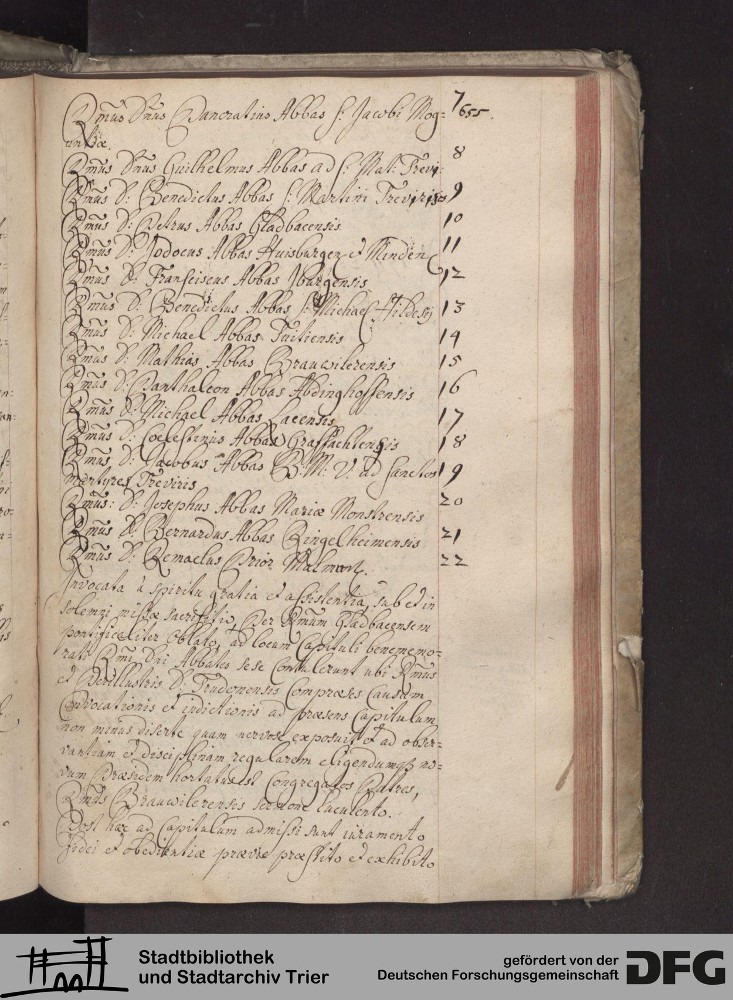 Rmus Dnus Pancratius Abbas S: Jacobi Mog= 7 655.
untiæ.
Rmus Dnus Guilhelmus Abbas ad S: Mat: Trevi: 8
Rmus D: Benedictus Abbas S: Martini Treviris 9
Rmus D: Petrus Abbas Gladbacensis 10
Rmus D: Jodocus Abbas Huisburgen et Minden 11
Rmus D: Franciscus Abbas Iburgensis 12
Rmus D: Benedictus Abbas S: Michael Hildesij 13
Rmus D: Michael Abbas Tuitiensis 14
Rmus D: Mathias Abbas Brauwilerensis 15
Rmus D: Panthaleon Abbas Abdinghoffensis 16
Rmus D: Michael Abbas Lacensis 17
Rmus D: Coelestinus Abbas Graffschtensis 18
Rmus D: Jacobus Abbas B: M: V: ad Sanctos 19
Martyres Treviris
Rmus: D: Josephus Abbas Mariæ Monstrensis 20
Rmus D: Bernardus Abbas Ringelheimensis 21
Rmus D: Remaclus Prior Malmont. 22
Invocata à spiritu gratia et assistentia, sub et in
solemni missæ sacrificio, Per Rmum Gladbacensem
pontificaliter oblato, ad locum Capituli bememo=
rati Rmi Dni Abbates sese contulerunt ubi Rmus
et Perillustris D: Trudonensis Compræses causam
Convocationis et indictionis ad præsens Capitulum
non minus diserte quam nervose exposuit et ad obser=
vantiam et disciplinam regularem eligendumq no=
vum Præsidem hortatus est Congregatos Patres,
Rmus Brauwilerensis sermone luculento.
Post hæc ad Capitulum admissi sunt iuramento
fidei et obedientiæ prævie præstito et exhibito
Stadtbibliothek
und Stadtarchiv Trier
gefördert von der
Deutschen Forschungsgemeinschaft
DFG